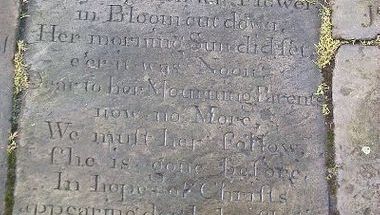 Flower
in Bloom cut down,
Her morning Sun did set,
e'er it was Noon.
Dear to her Mourning Parents
now no More,
We must her follow,
she is gone before,
In hopes of Christs
appearing